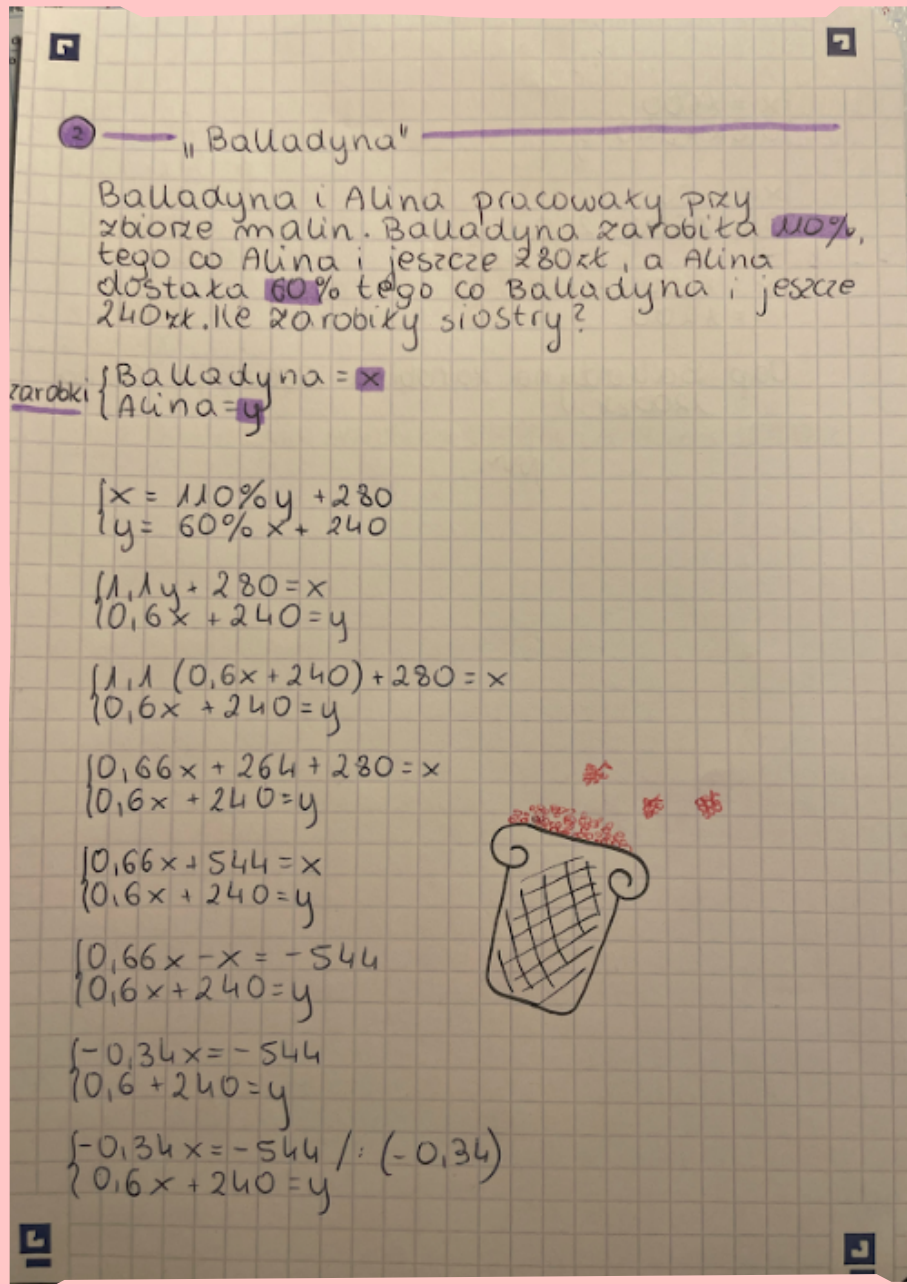 2 „Balladyna"
Balladyna i Alina pracowały przy
zbiorze malin. Balladyna zarobiła 110%,
tego co Alina i jeszcze 280zł, a Alina
dostała 60% tego co Balladyna i jeszcze
240zł. Ile zarobiły siostry?
zarobki { Balladyna = x
{ Alina = y
{ x = 110% y + 280
{ y = 60% x + 240
{ 1,1y + 280 = x
{ 0,6x + 240 = y
{ 1,1 (0,6x + 240) + 280 = x
{ 0,6x + 240 = y
{ 0,66x + 264 + 280 = x
{ 0,6x + 240 = y
{ 0,66x + 544 = x
{ 0,6x + 240 = y
{ 0,66x - x = -544
{ 0,6x + 240 = y
{ -0,34x = -544
{ 0,6 + 240 = y
{ -0,34x = -544 /: (-0,34)
{ 0,6x + 240 = y